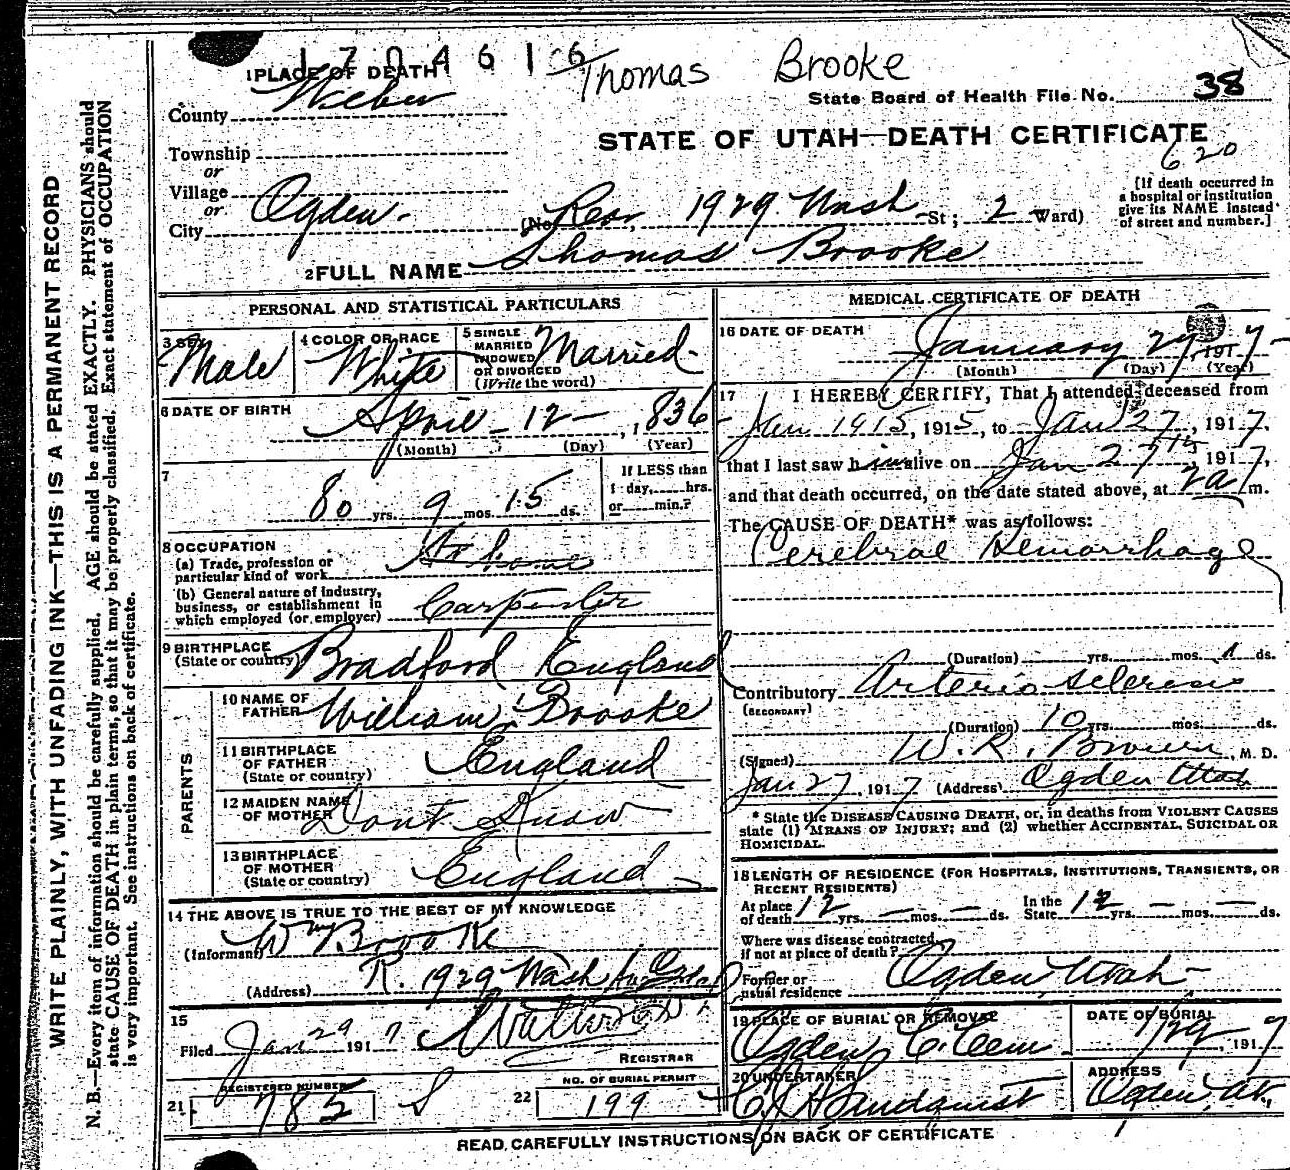 1704616
Thomas Brooke
1 PLACE OF DEATH
County Weber
State Board of Health File No. 38
STATE OF UTAH—DEATH CERTIFICATE
620
Township
or
Village
or
City Ogden. (No. Res, 1929 Wash St; 2 Ward)
[If death occurred in
a hospital or institution
give its NAME instead
of street and number.]
2 FULL NAME Thomas Brooke
PERSONAL AND STATISTICAL PARTICULARS
3 SEX Male
4 COLOR OR RACE White
5 SINGLE
MARRIED
WIDOWED
OR DIVORCED
(Write the word) Married
6 DATE OF BIRTH April - 12 - , 1836
(Month) (Day) (Year)
7
80 yrs. 9 mos. 15 ds.
If LESS than
1 day, hrs.
or min.?
8 OCCUPATION
(a) Trade, profession or
particular kind of work At home
(b) General nature of industry,
business, or establishment in
which employed (or employer) Carpenter
9 BIRTHPLACE
(State or country) Bradford England
PARENTS
10 NAME OF
FATHER William Brooke
11 BIRTHPLACE
OF FATHER
(State or country) England
12 MAIDEN NAME
OF MOTHER Dont Know
13 BIRTHPLACE
OF MOTHER
(State or country) England
14 THE ABOVE IS TRUE TO THE BEST OF MY KNOWLEDGE
(Informant) Wm Brooke
(Address) R. 1929 Wash Av
15
Filed Jan 29 1917
REGISTRAR
REGISTERED NUMBER
21 785 S
NO. OF BURIAL PERMIT
22 199
MEDICAL CERTIFICATE OF DEATH
16 DATE OF DEATH
January 27, 1917
(Month) (Day) (Year)
17 I HEREBY CERTIFY, That I attended deceased from
Jan 1915, 1915, to Jan 27, 1917,
that I last saw him alive on Jan 27th 1917,
and that death occurred, on the date stated above, at 2 a m.
The CAUSE OF DEATH* was as follows:
Cerebral Hemorrhage
(Duration) yrs. mos. 1 ds.
Contributory Arterio sclerosis
(SECONDARY)
(Duration) 10 yrs. mos. ds.
(Signed) W. R. Brown, M. D.
Jan 27, 1917 (Address) Ogden Utah
* State the DISEASE CAUSING DEATH, or, in deaths from VIOLENT CAUSES
state (1) MEANS OF INJURY; and (2) whether ACCIDENTAL, SUICIDAL OR
HOMICIDAL.
18 LENGTH OF RESIDENCE (FOR HOSPITALS, INSTITUTIONS, TRANSIENTS, OR
RECENT RESIDENTS)
At place
of death 12 yrs. — mos. — ds.
In the
State 12 yrs. — mos. — ds.
Where was disease contracted,
if not at place of death?
Former or
usual residence Ogden, Utah
19 PLACE OF BURIAL OR REMOVAL
Ogden C. Cem
DATE OF BURIAL
1/29, 1917
20 UNDERTAKER
Lindquist
ADDRESS
Ogden, Ut.
READ CAREFULLY INSTRUCTIONS ON BACK OF CERTIFICATE
WRITE PLAINLY, WITH UNFADING INK—THIS IS A PERMANENT RECORD
N. B.—Every item of information should be carefully supplied. AGE should be stated EXACTLY. PHYSICIANS should
state CAUSE OF DEATH in plain terms, so that it may be properly classified. Exact statement of OCCUPATION
is very important. See instructions on back of certificate.